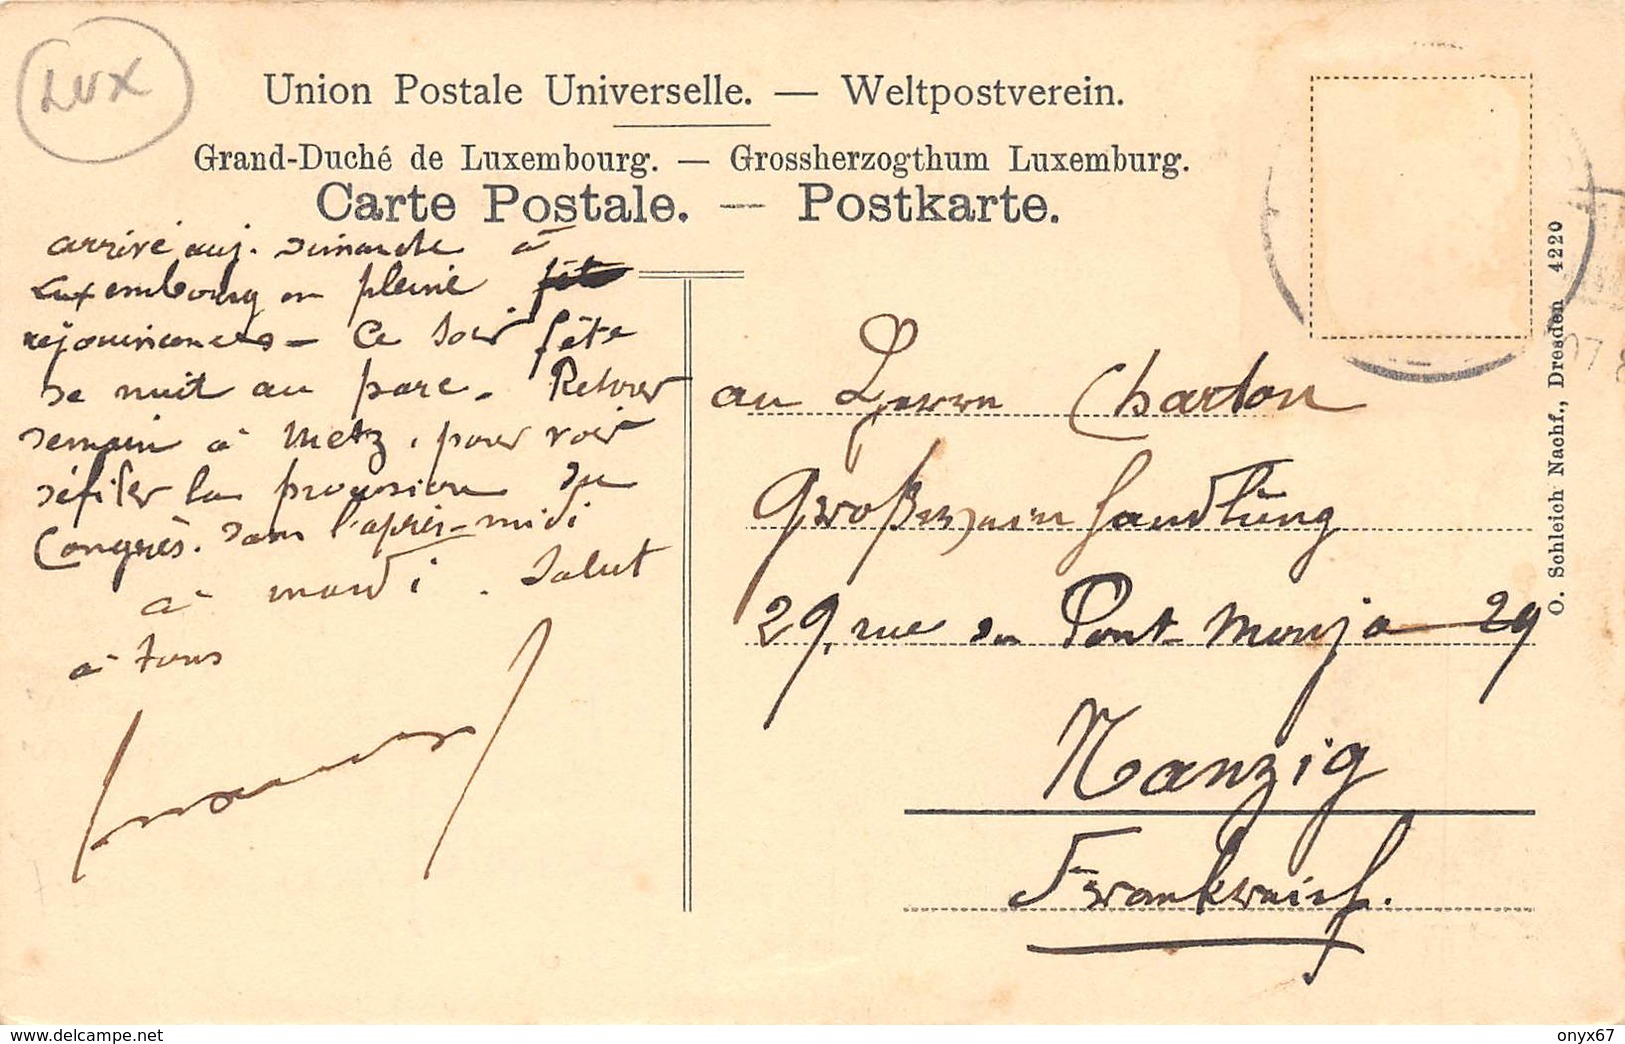 LUX
Union Postale Universelle. — Weltpostverein.
Grand-Duché de Luxembourg. — Grossherzogthum Luxemburg.
Carte Postale. — Postkarte.
arrivé auj. dimanche à
Luxembourg en pleine
réjouissances - Ce soir fête
de nuit au parc. Retour
demain à Metz, pour voir
défiler la procession du
Congrès. dans l'après-midi
à mardi. Salut
à tous
au Herrn Charton
Großweinhandlung
29, rue du Pont-Mouja 29
Nanzig
Frankreich.
O. Schleich Nachf., Dresden 4220
07 8
delcampe.net
onyx67